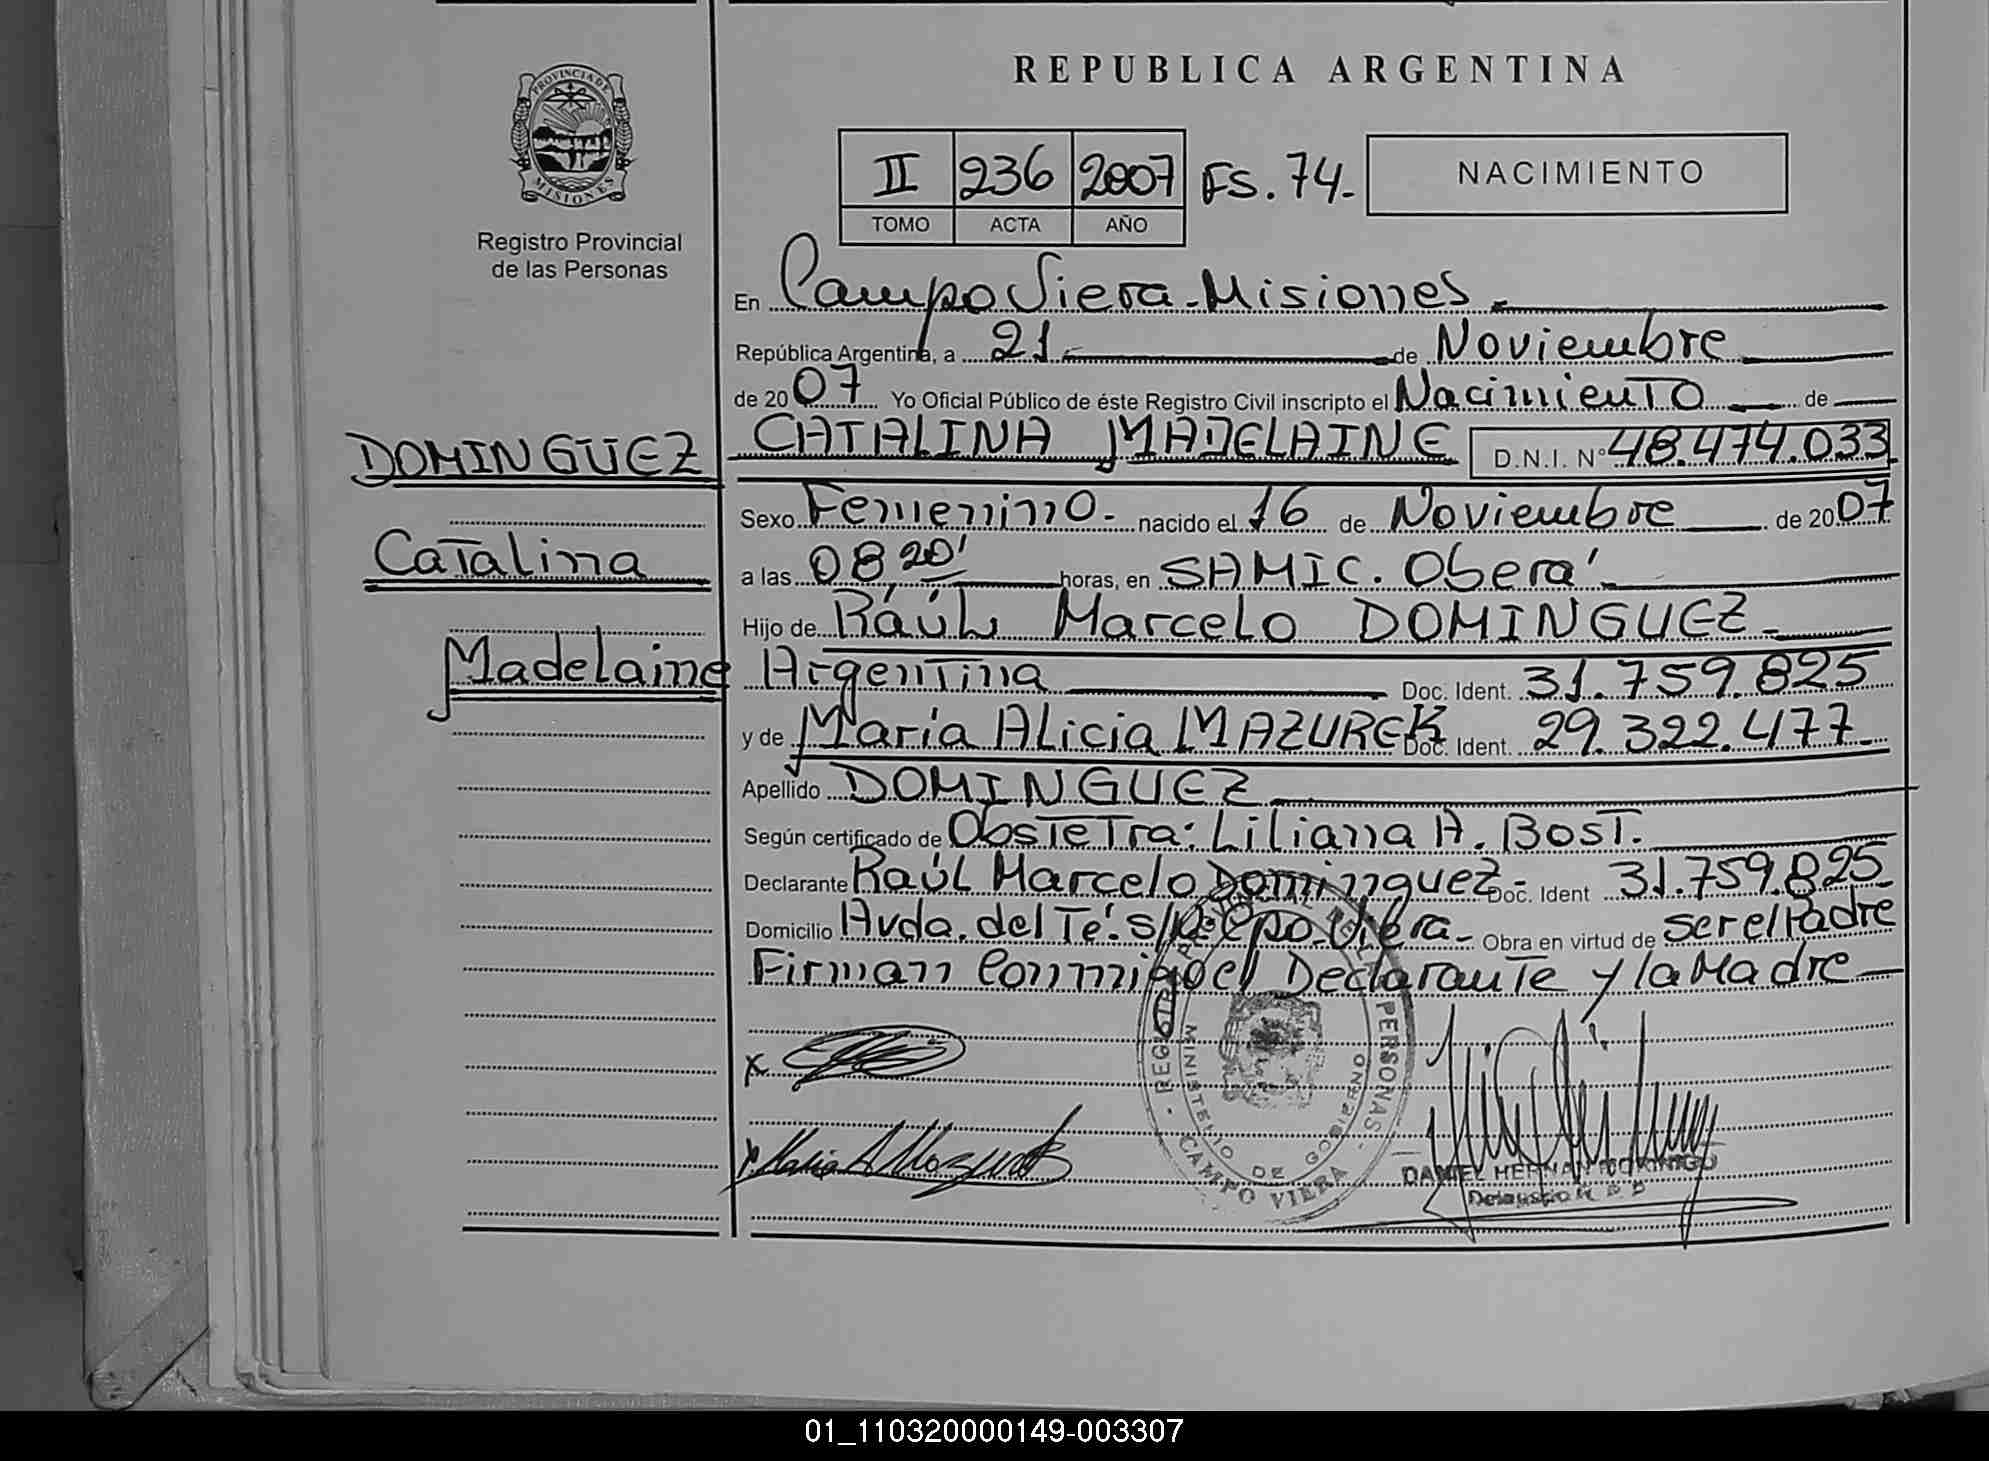 REPUBLICA ARGENTINA
PROVINCIA DE MISIONES
Registro Provincial
de las Personas
II 236 2007 FS. 74.-
TOMO ACTA AÑO
NACIMIENTO
En Campo Viera - Misiones.
República Argentina, a 21.- de Noviembre
de 2007 Yo Oficial Público de éste Registro Civil inscripto el Nacimiento de
DOMINGUEZ
Catalina
Madelaine
CATALINA MADELAINE D.N.I. N° 48.474.033
Sexo Femenino.- nacido el 16 de Noviembre de 2007
a las 08,20' horas, en SAMIC. Oberá.-
Hijo de Raúl Marcelo DOMINGUEZ.-
Argentina Doc. Ident. 31.759.825
y de María Alicia MAZUREK Doc. Ident. 29.322.477
Apellido DOMINGUEZ
Según certificado de Obstetra: Liliana A. Bost.
Declarante Raúl Marcelo Dominguez.- Doc. Ident 31.759.825
Domicilio Avda. del Té. s/Nº Cpo. Viera.- Obra en virtud de ser el Padre
Firman Conmigo el Declarante y la Madre
x
REGISTRO PROVINCIAL DE LAS PERSONAS - CAMPO VIERA -
MINISTERIO DE GOBIERNO
DANIEL HERNAN
01_110320000149-003307